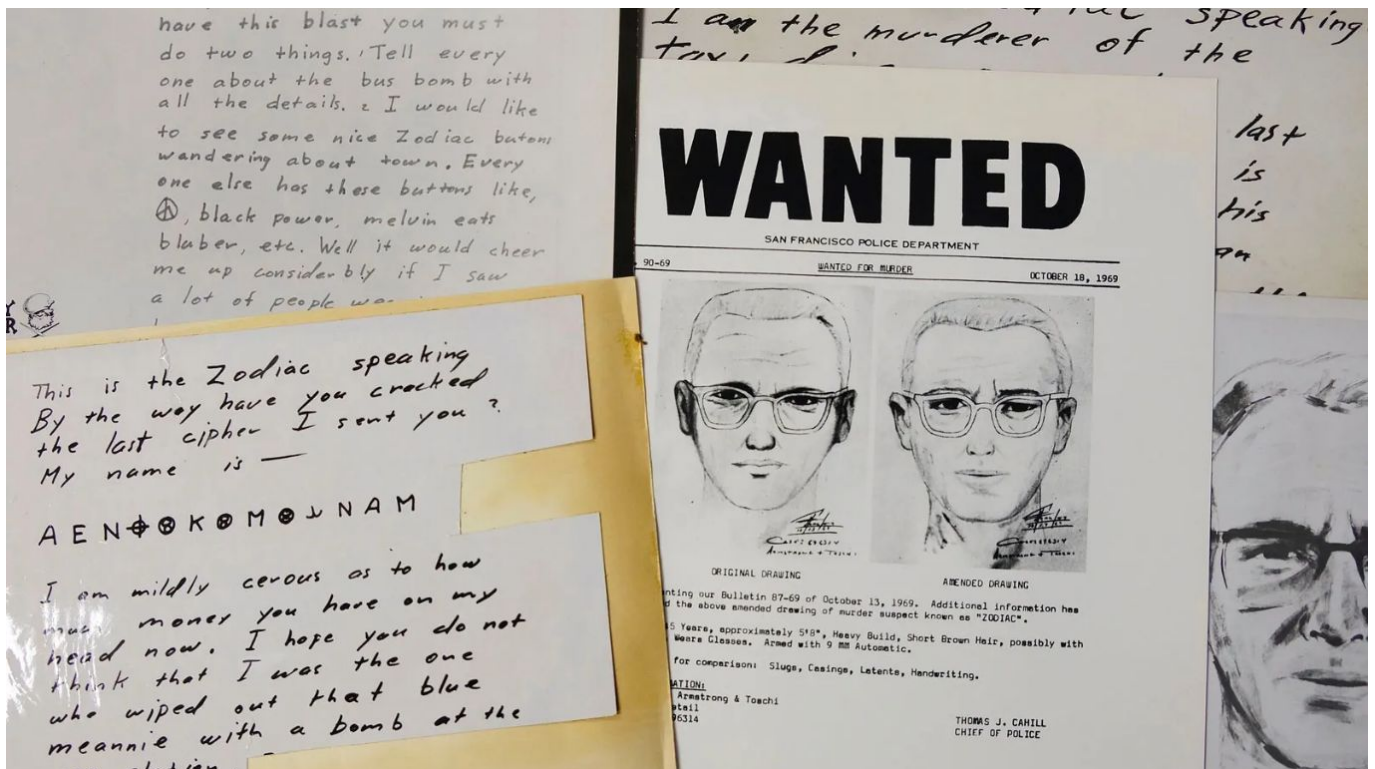 have this blast you must
do two things. Tell every
one about the bus bomb with
all the details. 2 I would like
to see some nice Zodiac butons
wandering about town. Every
one else has these buttons like,
, black power, melvin eats
bluber, etc. Well it would cheer
me up considerbly if I saw
a lot of people
This is the Zodiac speaking
By the way have you cracked
the last cipher I sent you?
My name is —
A E N ⌖ ⊗ K ⊗ M ⊗ N A M
I am mildly cerous as to how
money you have on my
head now. I hope you do not
think that I was the one
who wiped out that blue
meannie with a bomb at the
speaking
I am the murderer of the
last
is
his
an
WANTED
SAN FRANCISCO POLICE DEPARTMENT
90-69 WANTED FOR MURDER OCTOBER 18, 1969
ORIGINAL DRAWING AMENDED DRAWING
nting our Bulletin 87-69 of October 13, 1969. Additional information has
d the above amended drawing of murder suspect known as "ZODIAC".
5 Years, approximately 5'8", Heavy Build, Short Brown Hair, possibly with
Wears Glasses. Armed with 9 MM Automatic.
for comparison: Slugs, Casings, Latents, Handwriting.
ATION:
Armstrong & Toschi
etail
96314
THOMAS J. CAHILL
CHIEF OF POLICE